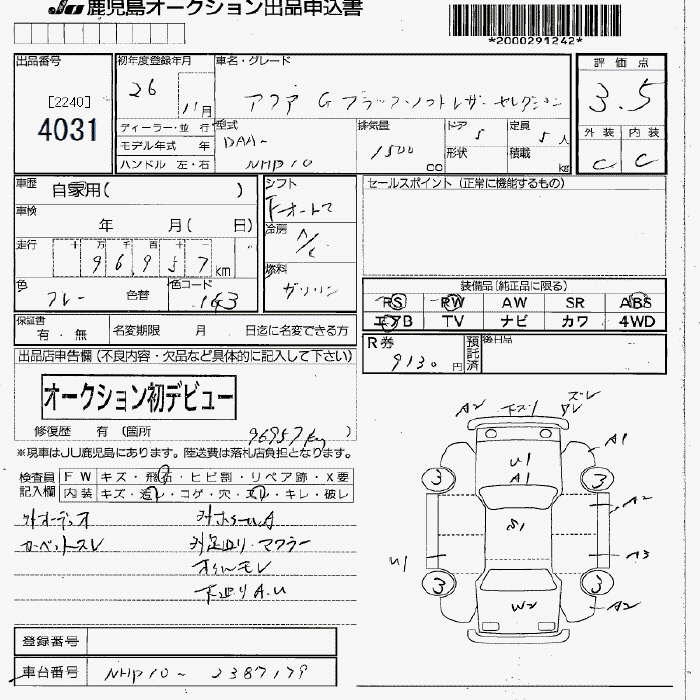 JU 鹿児島オークション出品申込書
*2000291242*
出品番号
[2240]
4031
初年度登録年月
26
11月
車名・グレード
アクア G ブラックソフトレザーセレクション
評価点
3.5
外装 内装
C C
ディーラー・並行
モデル年式 年
ハンドル 左・右
型式
DAA-
NHP10
排気量
1500
cc
ドア 5
形状
定員 5人
積載 kg
車歴
自家用( )
車検
年 月( 日)
走行
十 万 千 百 十 一
96,957 km
色
グレー
色替
色コード
1G3
シフト
F-オートマ
冷房
A/C
燃料
ガソリン
セールスポイント (正常に機能するもの)
装備品 (純正品に限る)
PS PW AW SR ABS
エアB TV ナビ カワ 4WD
保証書
有・無
名変期限 月 日迄に名変できる方
R券
9130円
預託済
後日品
出品店申告欄 (不良内容・欠品など具体的に記入して下さい)
オークション初デビュー
修復歴 有 (箇所 )
96957Km
※現車はJU鹿児島にあります。陸送費は落札店負担となります。
検査員記入欄
FW キズ・飛石・ヒビ割・リペア跡・X要
内装 キズ・造レ・コゲ・穴・スレ・キレ・破レ
外オーディオ
カーペットスレ
外ホイールA
外足廻リ・マフラー
オイルモレ
下廻リA.U
A2
下スリ
ズレ
ワレ
A1
U1
A1
3
3
A2
S1
U1
A3
3
3
W2
A2
登録番号
車台番号
NHP10-2387179